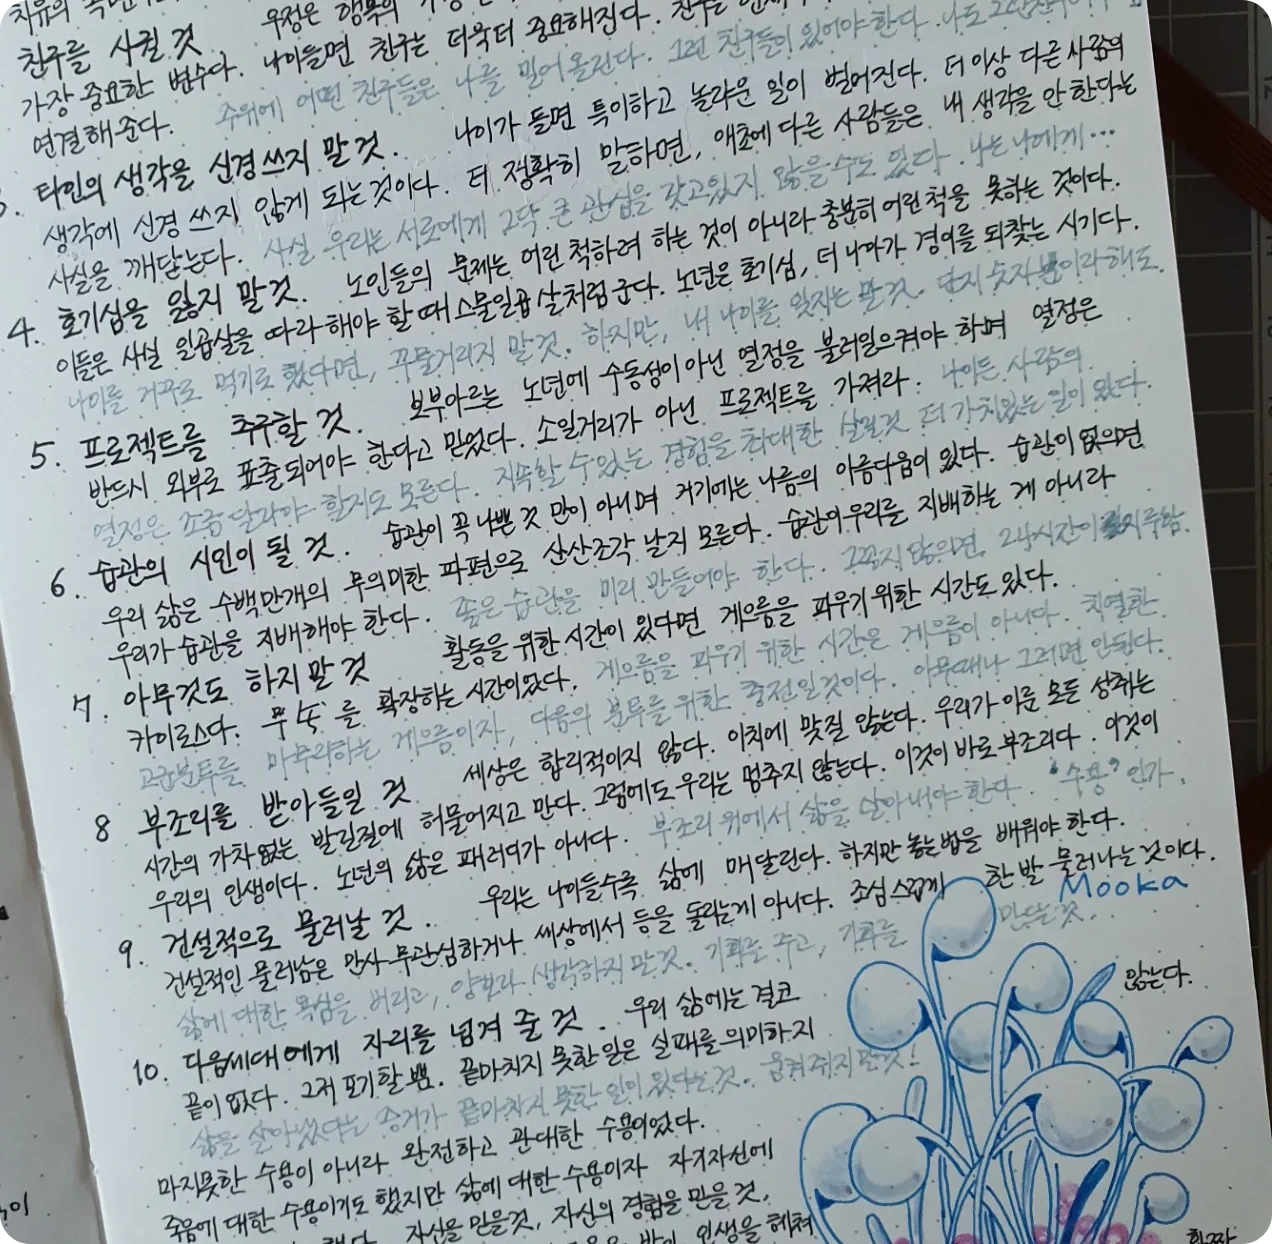 친구를 사귈 것
가장 중요한 변수다. 나이들면 친구는 더욱더 중요해진다.
연결해준다. 주위에 어떤 친구들은 나를 밀어 올린다. 그런 친구들이 있어야 한다.
타인의 생각을 신경쓰지 말 것. 나이가 들면 특이하고 놀라운 일이 벌어진다. 더 이상 다른 사람의
생각에 신경 쓰지 않게 되는 것이다. 더 정확히 말하면, 애초에 다른 사람들은 내 생각을 안 한다는
사실을 깨닫는다. 사실 우리는 서로에게 그닥 큰 관심을 갖고있지 않을 수도 있다. 나는 나에게...
4. 호기심을 잃지 말 것. 노인들의 문제는 어린 척하려 하는 것이 아니라 충분히 어린 척을 못하는 것이다.
이들은 사실 일곱살을 따라 해야 할 때 스물일곱 살처럼 군다. 노년은 호기심, 더 나아가 경이를 되찾는 시기다.
나이를 거꾸로 먹기로 했다면, 꾸물거리지 말 것. 하지만, 내 나이를 잊지는 말 것. 단지 숫자 이라해도.
5. 프로젝트를 추구할 것. 보부아르는 노년에 수동성이 아닌 열정을 불러일으켜야 하며 열정은
반드시 외부로 표출되어야 한다고 믿었다. 소일거리가 아닌 프로젝트를 가져라. 나이든 사람의
열정은 조금 달라야 할지도 모른다. 지속할 수 있는 경험을 최대한 살릴것 더 가치있는 일이 있다.
6. 습관의 시인이 될 것. 습관이 꼭 나쁜 것 만이 아니며 거기에는 나름의 아름다움이 있다. 습관이 없으면
우리 삶은 수백만개의 무의미한 파편으로 산산조각 날지 모른다. 습관이 우리를 지배하는 게 아니라
우리가 습관을 지배해야 한다. 좋은 습관을 미리 만들어야 한다. 그렇지 않으면, 24시간이 지루함.
7. 아무것도 하지 말 것 활동을 위한 시간이 있다면 게으름을 피우기 위한 시간도 있다.
카이로스다. 무 를 확장하는 시간이었다. 게으름을 피우기 위한 시간은 게으름이 아니다. 치열한
고군분투를 마무리하는 게으름이자, 다음의 분투를 위한 충전일것이다. 아무때나 그러면 안된다.
8 부조리를 받아들일 것 세상은 합리적이지 않다. 이치에 맞질 않는다. 우리가 이룬 모든 성취는
시간의 가차없는 발길질에 허물어지고 만다. 그럼에도 우리는 멈추지 않는다. 이것이 바로 부조리다. 이것이
우리의 인생이다. 노년의 삶은 패러디가 아니다. 부조리 위에서 삶을 살아내야 한다. "수용"인가.
9. 건설적으로 물러날 것. 우리는 나이들수록 삶에 매달린다. 하지만 놓는 법을 배워야 한다.
건설적인 물러남은 만사 무관심하거나 세상에서 등을 돌리는게 아니다. 조심스럽게 한 발 물러나는 것이다.
Mooka
삶에 대한 욕심을 버리고, 양보라 생각하지 말 것. 기회를 주고, 기회를 만드는 것.
10. 다음세대에게 자리를 넘겨 줄 것. 우리 삶에는 결코
끝이 없다. 그저 포기할 뿐. 끝마치지 못한 일은 실패를 의미하지
않는다.
삶을 살아냈다는 증거가 끝마치지 못한 일이 있다는것. 움켜쥐지 말 것!
마지못한 수용이 아니라 완전하고 관대한 수용이었다.
죽음에 대한 수용이기도 했지만 삶에 대한 수용이자 자기자신에
자신을 믿을 것, 자신의 경험을 믿을 것,
인생을 헤쳐